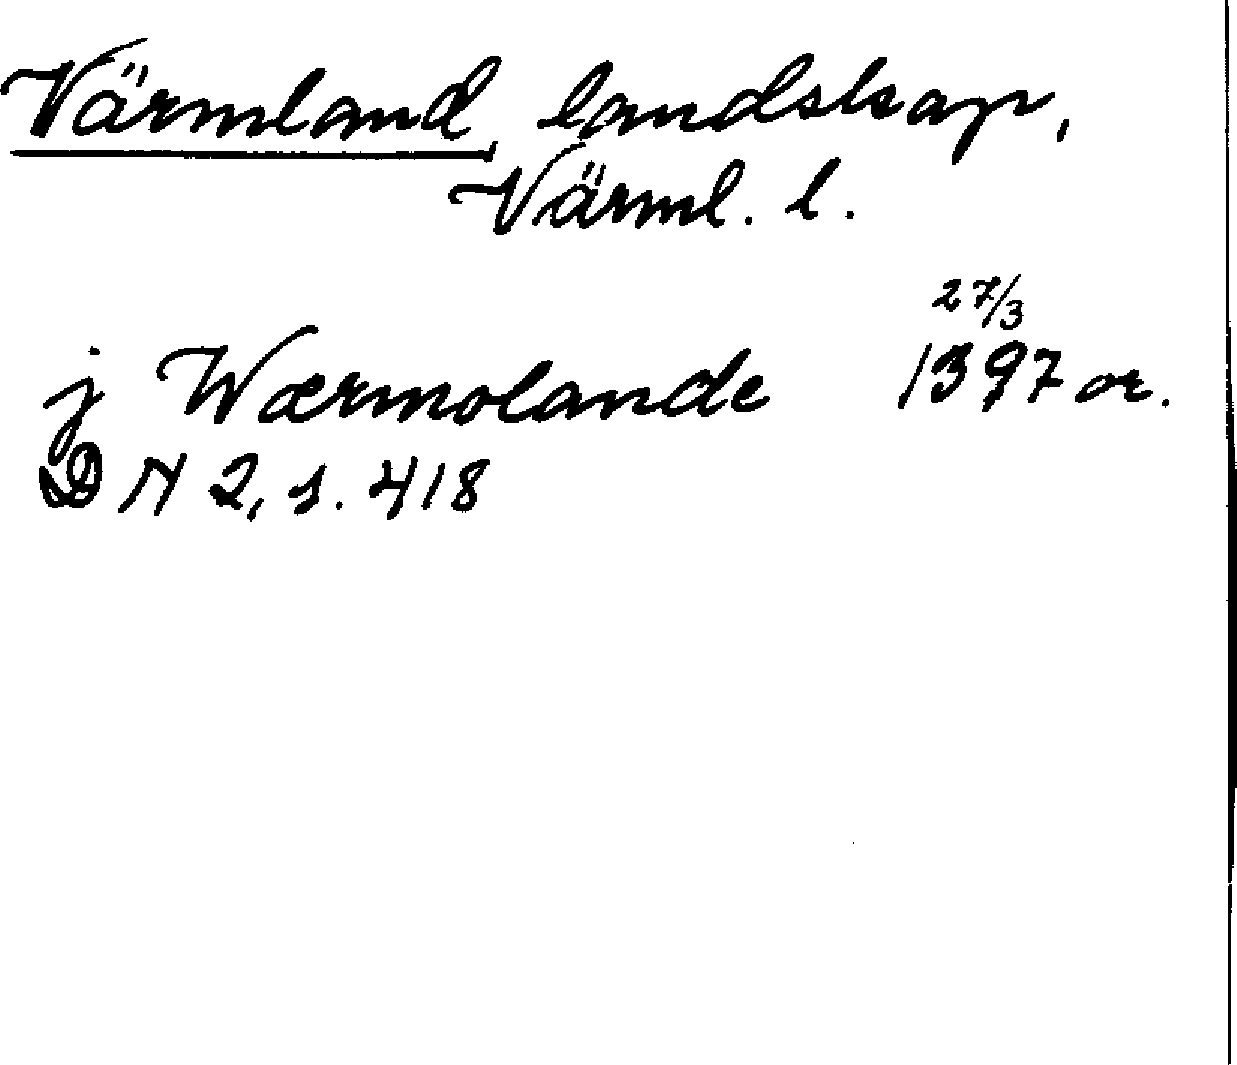 Värmland, landskap,
Värml. l.
27/3
j Wærmolande 1397 or.
DN 2, s. 418